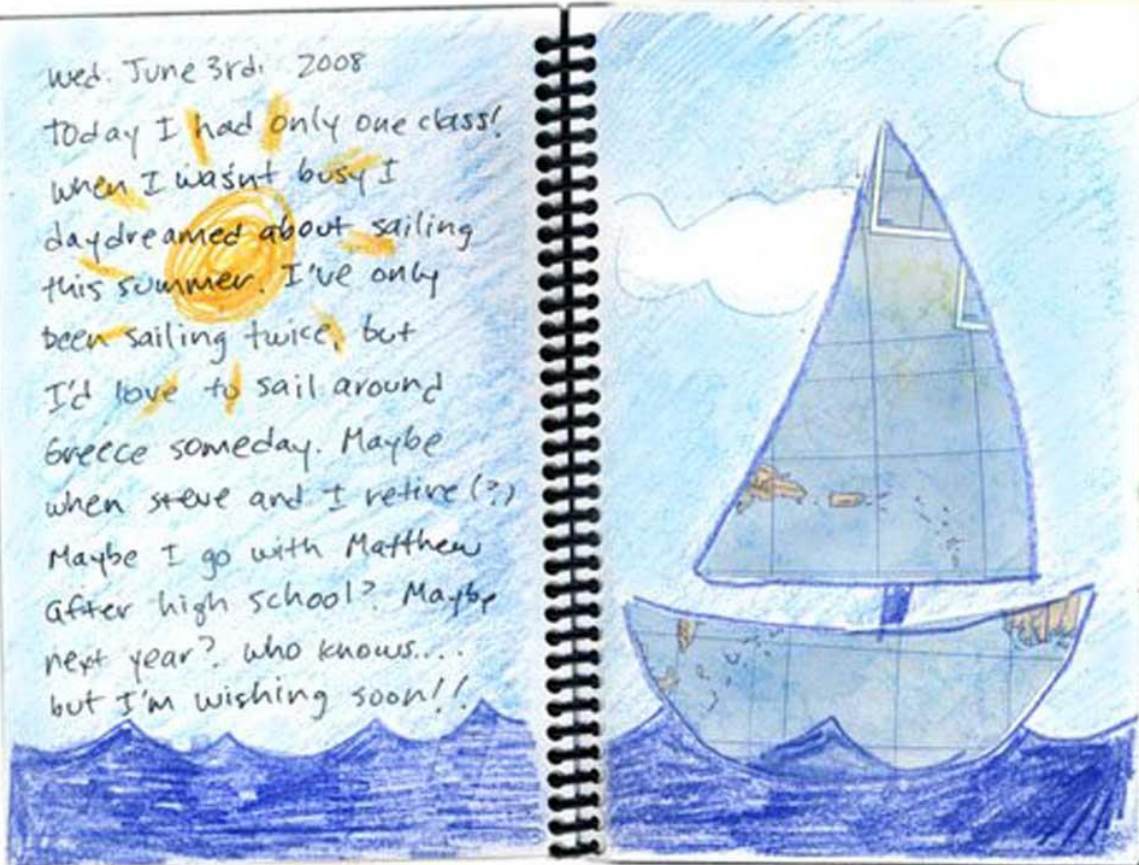 Wed. June 3rd. 2008
Today I had only one class!
When I wasn't busy I
daydreamed about sailing
this summer. I've only
been sailing twice, but
I'd love to sail around
Greece someday. Maybe
when steve and I retire (?)
Maybe I go with Matthew
after high school? Maybe
next year? who knows....
but I'm wishing soon!!